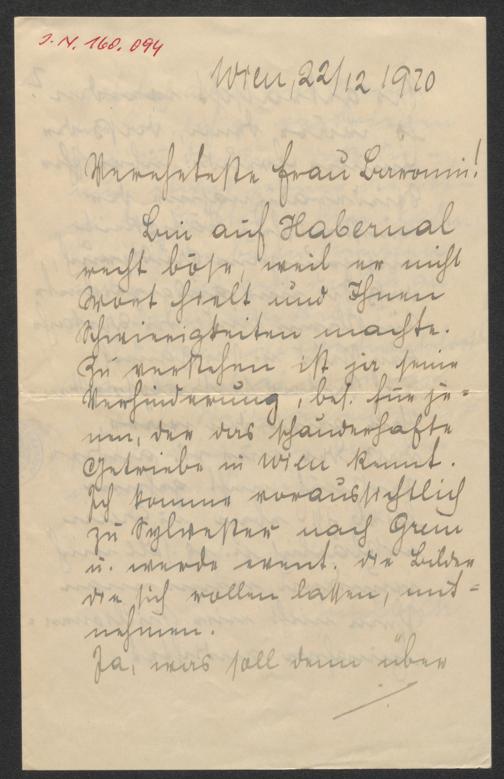 J. N. 160.094
Wien, 22/12 1920
Verehrteste Frau Baronin!
Bin auf Habernal
recht böse, weil er nicht
Wort hielt und Ihnen
Schwierigkeiten machte.
Zu verstehen ist ja seine
Verhinderung, bes. für je=
nen, der das schauderhafte
Getriebe in Wien kennt.
Ich komme voraussichtlich
zu Sylvester nach Grein
u. werde event. die Bilder
die sich rollen lassen, mit=
nehmen.
Ja, was soll denn über